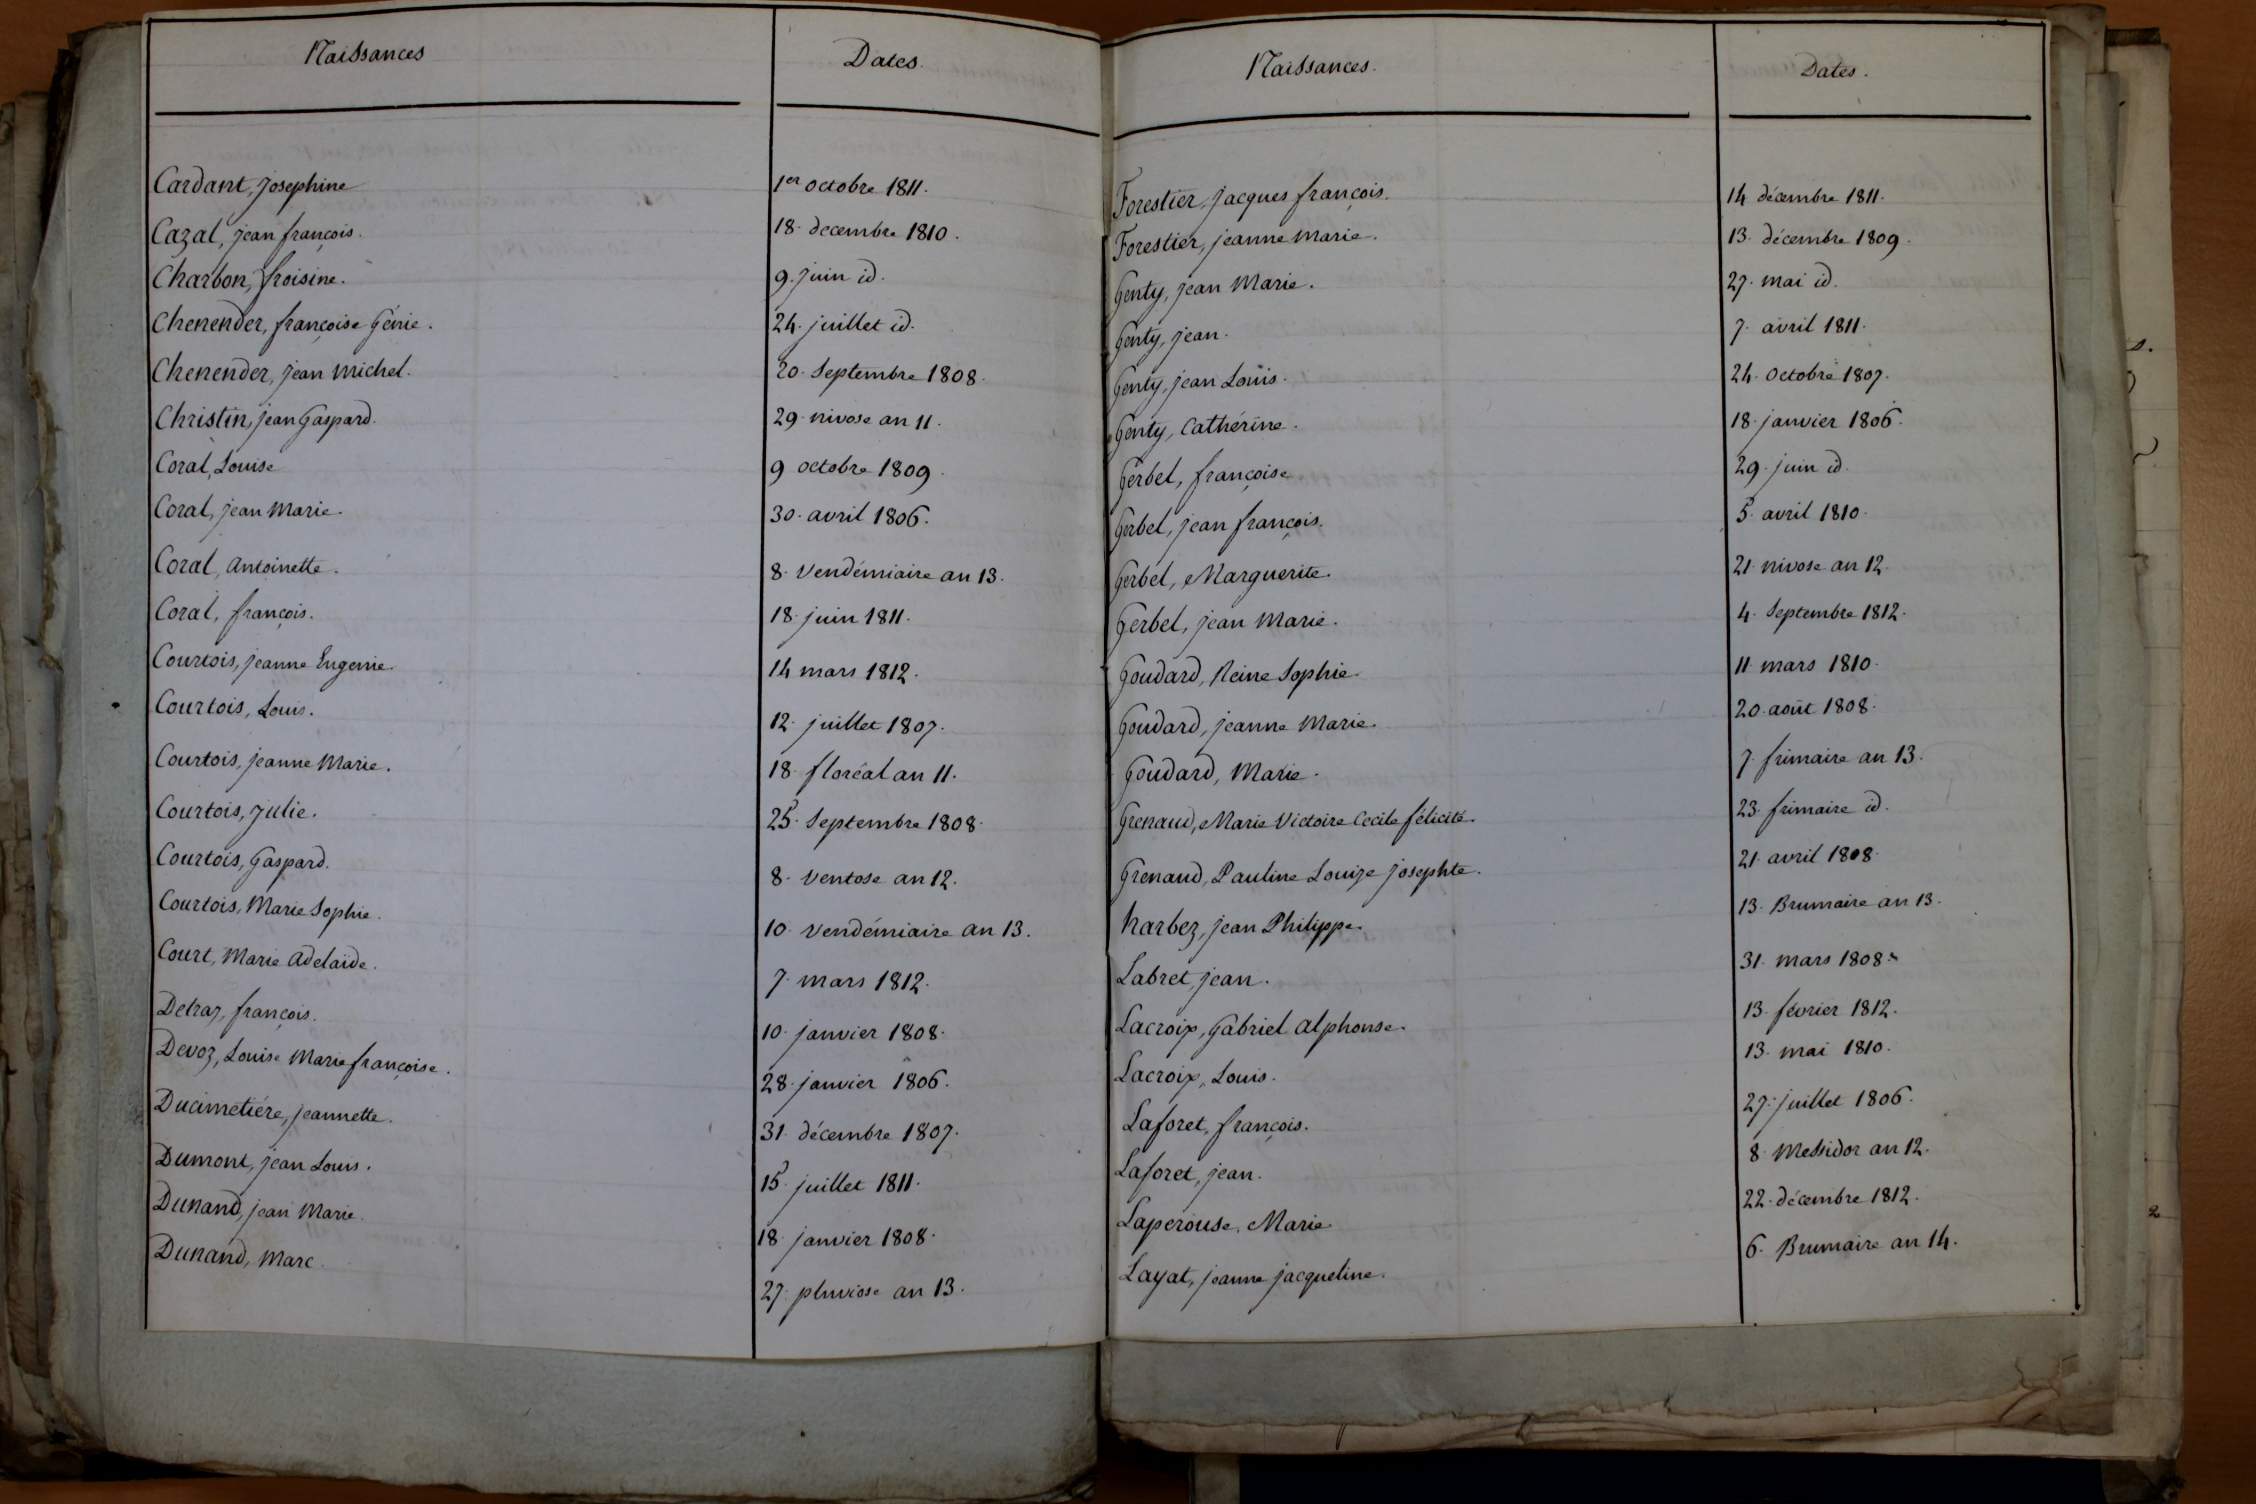 Naissances Dates.
Cardant, Josephine 1er octobre 1811.
Cazal, jean françois. 18. decembre 1810.
Charbon, froisine. 9. juin id.
Chenender, françoise Génie. 24. juillet id.
Chenender, jean michel. 20. Septembre 1808.
Christin, jean Gaspard. 29. nivose an 11.
Coral, Louise 9 octobre 1809.
Coral, jean Marie. 30. avril 1806.
Coral, antoinette. 8. Vendémiaire an 13.
Coral, françois. 18. juin 1811.
Courtois, jeanne Eugenie. 14 mars 1812.
Courtois, Louis. 12. juillet 1807.
Courtois, jeanne Marie. 18. floréal an 11.
Courtois, Julie. 25. Septembre 1808.
Courtois, Gaspard. 8. Ventose an 12.
Courtois, Marie Sophie. 10. Vendémiaire an 13.
Court, Marie adelaïde. 7. mars 1812.
Detraz, françois. 10. janvier 1808.
Devoz, Louise Marie françoise. 28. janvier 1806.
Ducimetiére, jeannette. 31. décembre 1807.
Dumont, jean Louis. 15. juillet 1811.
Dunand, jean Marie. 18. janvier 1808.
Dunand, Marc. 27. pluviose an 13.
Naissances. Dates.
Forestier, jacques françois. 14 décembre 1811.
Forestier, jeanne Marie. 13. décembre 1809.
Genty, jean Marie. 27. mai id.
Genty, jean. 7. avril 1811.
Genty, jean Louis. 24. octobre 1807.
Genty, Cathérine. 18. janvier 1806.
Gerbel, françoise 29. juin id.
Gerbel, jean françois. 5. avril 1810.
Gerbel, Marguerite. 21. nivose an 12.
Gerbel, jean Marie. 4. Septembre 1812.
Goudard, Reine Sophie. 11. mars 1810.
Goudard, jeanne Marie. 20. août 1808.
Goudard, Marie. 7. frimaire an 13.
Grenaud, Marie Victoire Cecile félicité. 23. frimaire id.
Grenaud, Pauline Louize josephte. 21. avril 1808.
harbez, jean Philippe. 13. Brumaire an 13.
Labret, jean. 31. mars 1808.
Lacroix, Gabriel alphonse. 13. février 1812.
Lacroix, Louis. 13. mai 1810.
Laforet, françois. 27. juillet 1806.
Laforet, jean. 8. Messidor an 12.
Laperouse, Marie 22. décembre 1812.
Layat, jeanne jacqueline. 6. Brumaire an 14.